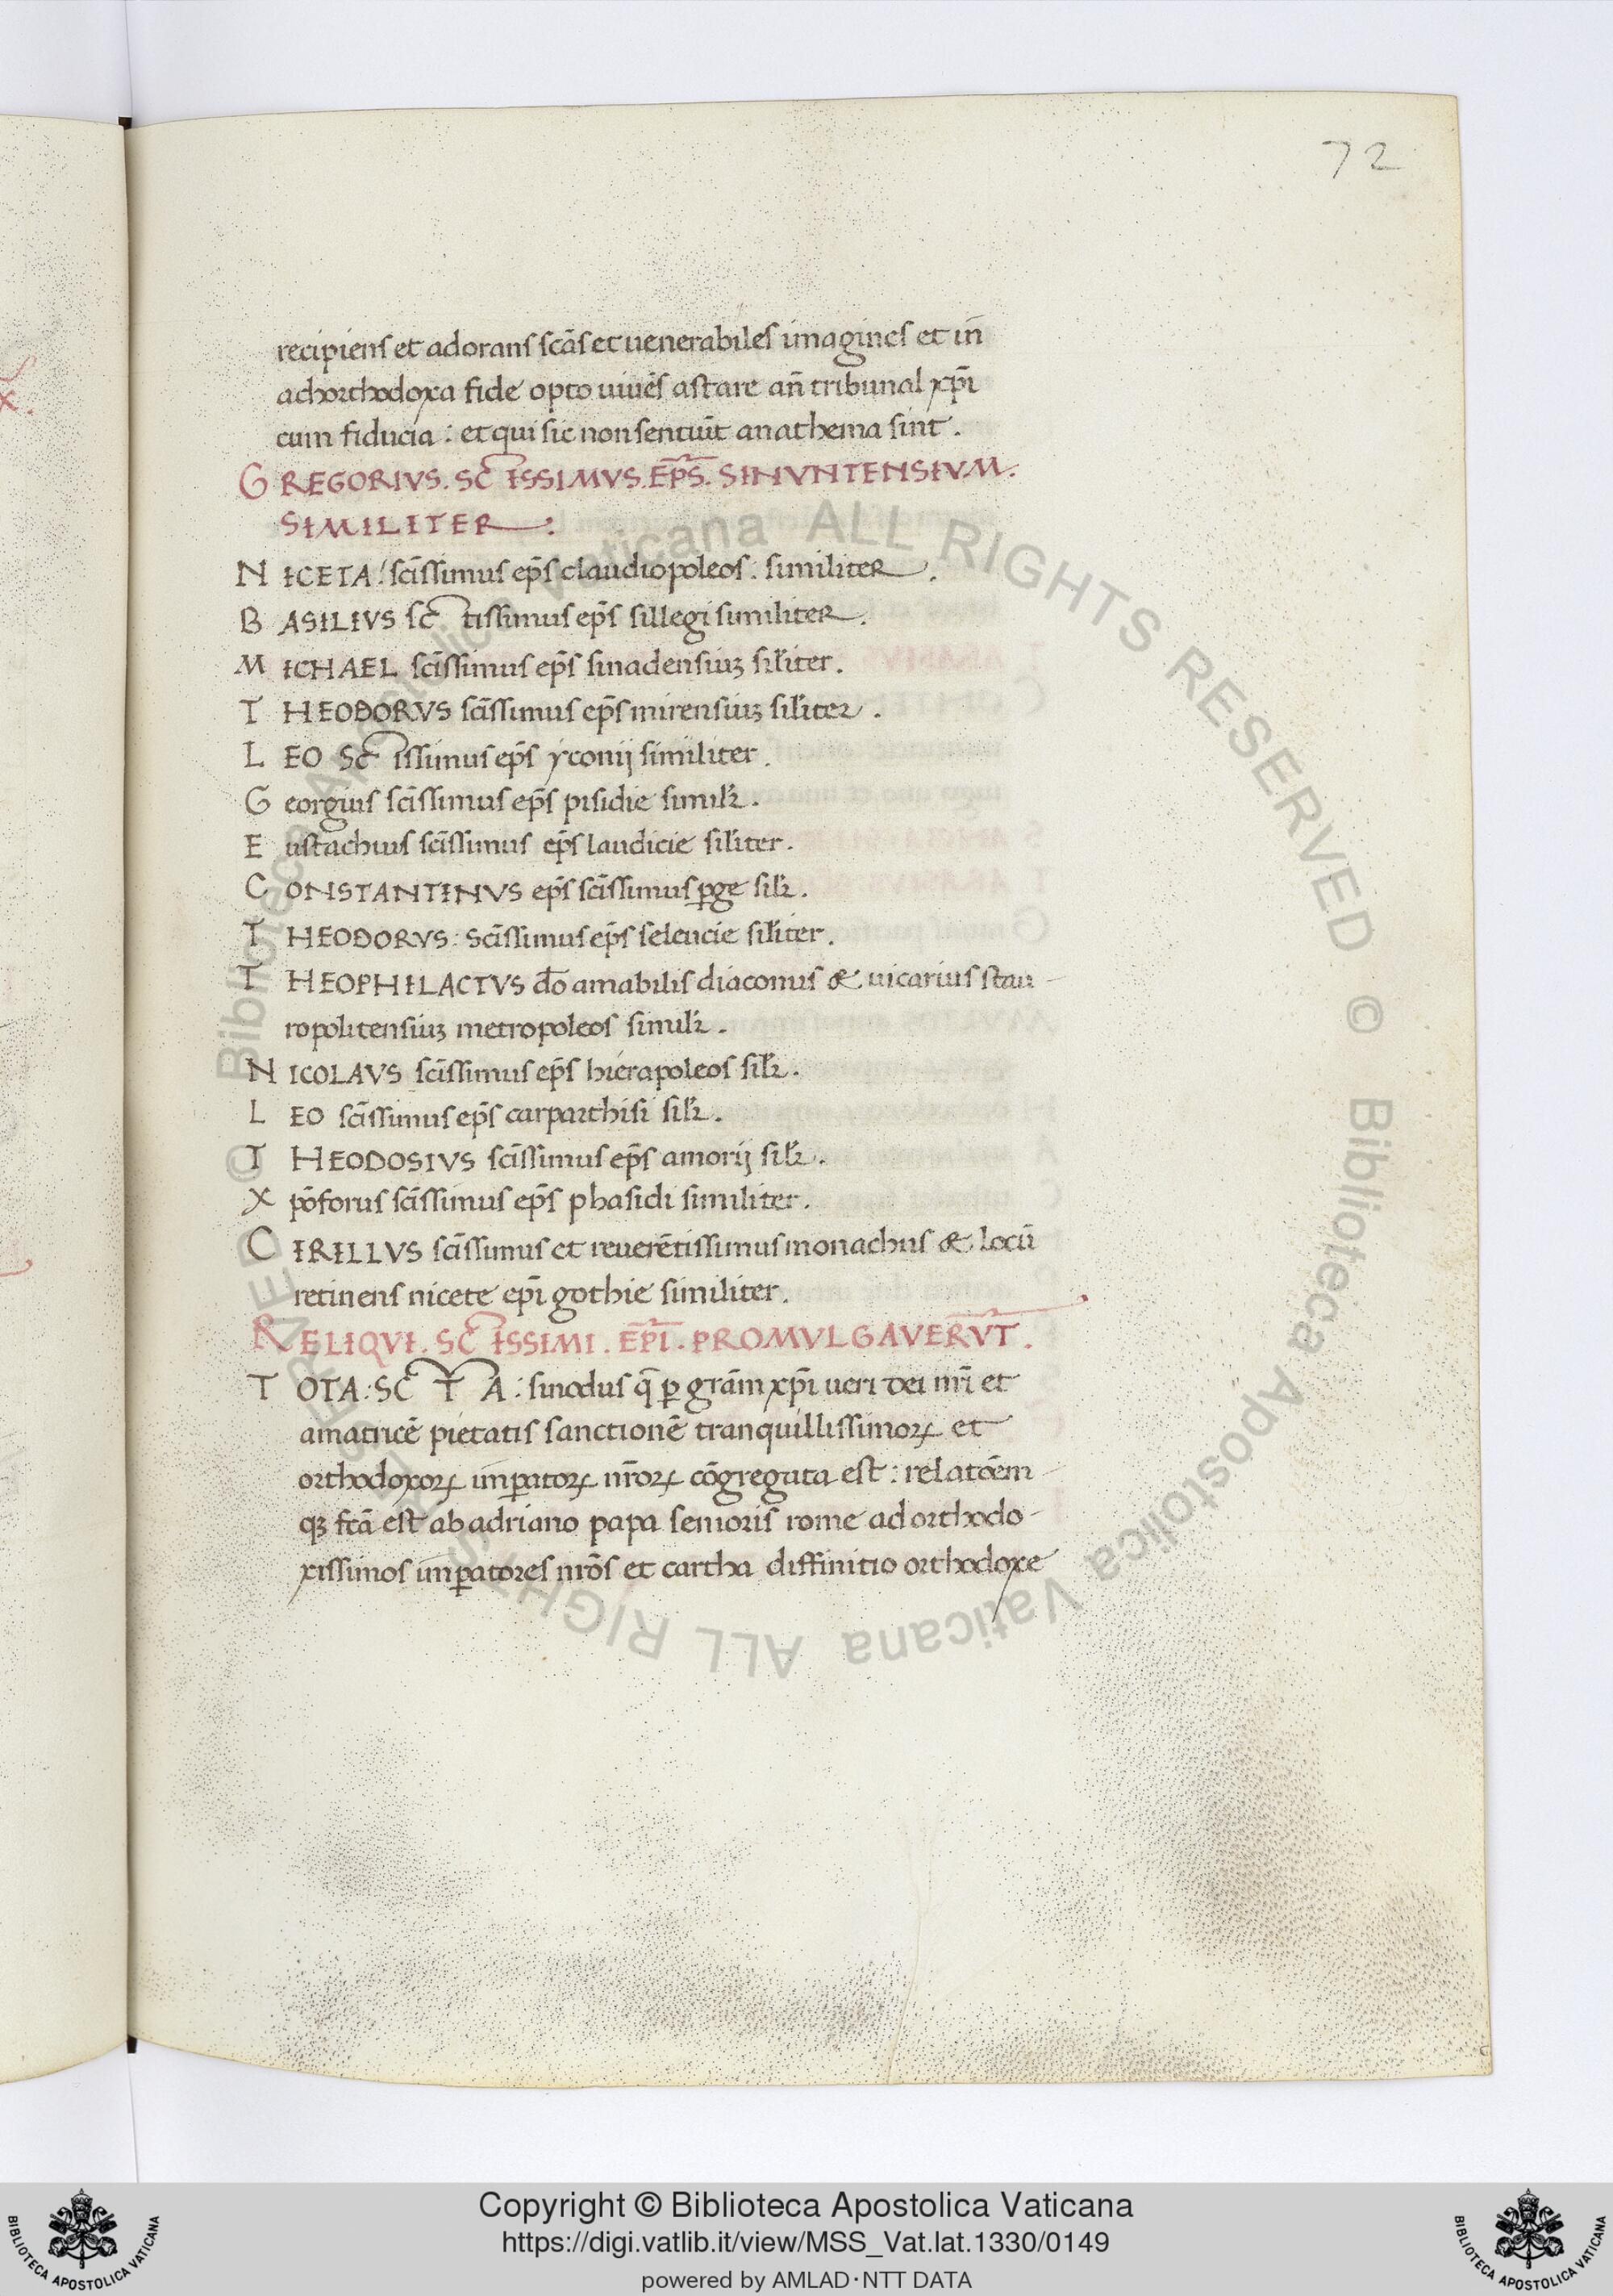 72
recipiens et adorans scãs et uenerabiles imagines et in̄
adhorthodoxa fide opto uiuẽs astare an̄ tribunal xp̄i
cum fiducia : et qui sic non sentiũt anathema sint .
GREGORIVS . SC̄ISSIMVS . EP̄S . SINVNTENSIVM .
SIMILITER :
NICETA! scīssimus ep̄s claudiopoleos . similiter .
BASILIVS sc̄tissimus ep̄s sillegi similiter .
MICHAEL scīssimus ep̄s sinadensiuꝫ sił̃iter .
THEODORVS scīssimus ep̄s mirensiuꝫ sił̃iter .
LEO Sc̄issimus ep̄s yconij similiter .
Georgius scīssimus ep̄s pisidie simił̃r .
Eustachius scīssimus ep̄s laudicie sił̃iter .
CONSTANTINVS ep̄s scīssimus ꝑge sił̃r .
THEODORVS : Scīssimus ep̄s seleucie sił̃iter .
THEOPHILACTVS d̄o amabilis diaconus & uicarius stau-
ropolitensiuꝫ metropoleos simił̃r .
NICOLAVS scīssimus ep̄s hierapoleos sił̃r .
LEO scīssimus ep̄s carparthisi sił̃r .
THEODOSIVS scīssimus ep̄s amorij sił̃r .
Xpõforus scīssimus ep̄s phasidi similiter .
CIRILLVS scīssimus et reuerẽtissimus monachus & locũ
retinens nicete ep̄i gothie similiter .
RELIQVI . SC̄ISSIMI . EP̄I . PROMVLGAVERV̄T .
TOTA : SC̄TA : sinodus q̄ ꝑ grãm xp̄i ueri dei nr̄i et
amatricẽ pietatis sanctionẽ tranquillissimoꝝ et
orthodoxoꝝ imꝑatoꝝ nr̄oꝝ cõgregata est : relatõem
qꝫ fcã est ab adriano papa senioris rome ad orthodo-
xissimos imꝑatores nrõs et cartha diffinitio orthodoxe
© Biblioteca Apostolica Vaticana ALL RIGHTS RESERVED © Biblioteca Apostolica Vaticana ALL RIGHTS RESERVED
Copyright © Biblioteca Apostolica Vaticana
https://digi.vatlib.it/view/MSS_Vat.lat.1330/0149
powered by AMLAD·NTT DATA
BIBLIOTECA APOSTOLICA VATICANA
BIBLIOTECA APOSTOLICA VATICANA